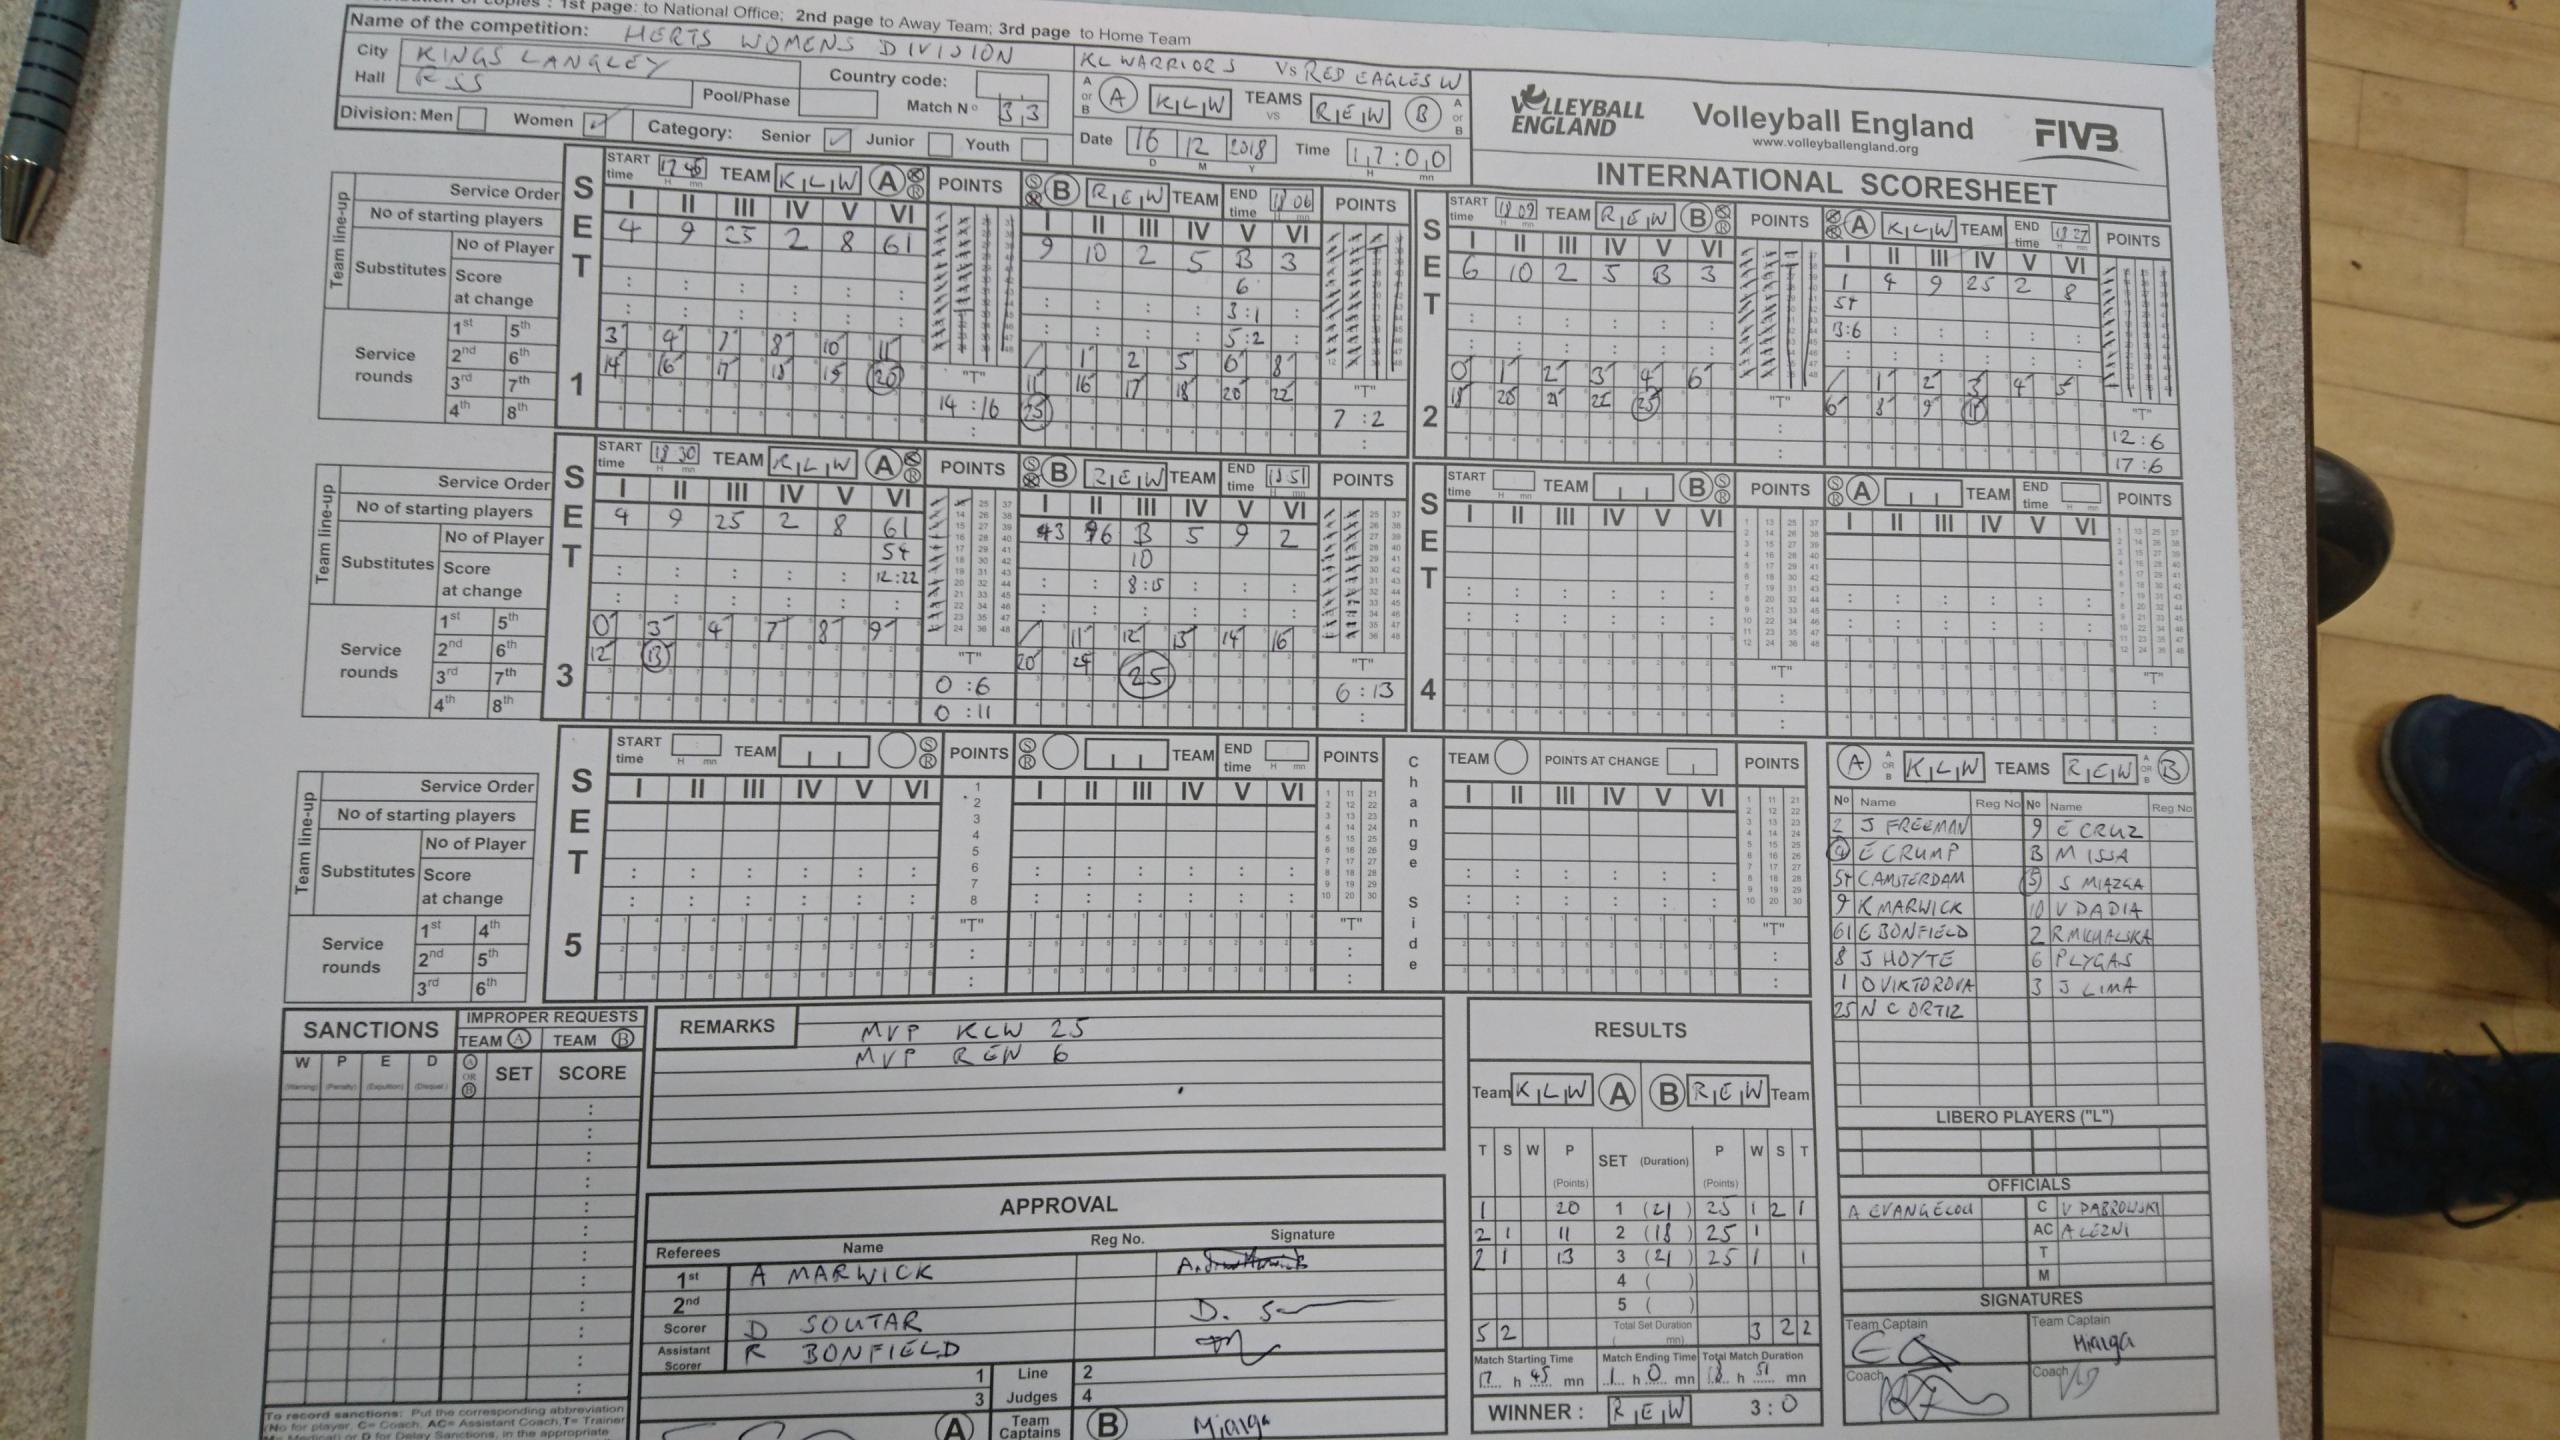 1st page: to National Office; 2nd page to Away Team; 3rd page to Home Team
Name of the competition: HERTS WOMENS DIVISION
City KINGS LANGLEY
Hall RSS
Country code:
Pool/Phase
Match Nº 33
Division: Men Women ✓ Category: Senior ✓ Junior Youth
KL WARRIORS Vs RED EAGLES W
A or B A KLW TEAMS vs REW B A or B
Date 16 12 2018 Time 17:00
D M Y H mn
VOLLEYBALL ENGLAND
Volleyball England
www.volleyballengland.org
FIVB
INTERNATIONAL SCORESHEET
Team line-up
Service Order
No of starting players
Substitutes
No of Player
Score at change
Service rounds
1st 5th
2nd 6th
3rd 7th
4th 8th
SET 1
START time 17 45 TEAM KLW A S R POINTS
I II III IV V VI
4 9 25 2 8 61
3 4 7 8 10 11
14 16 17 18 19 20
"T"
14 : 16
S R B REW TEAM END time 18 06 POINTS
I II III IV V VI
9 10 2 5 B 3
6
3:1
5:2
1 2 5 6 8
11 16 17 18 20 22
25
"T"
7 : 2
SET 2
START time 18 09 TEAM REW B S R POINTS
I II III IV V VI
6 10 2 5 B 3
0 1 2 3 4 6
18 20 21 22 25
"T"
S R A KLW TEAM END time 18 27 POINTS
I II III IV V VI
1 4 9 25 2 8
54
13:6
1 2 3 4 5
6 8 9 11
"T"
12:6
17:6
Team line-up
Service Order
No of starting players
Substitutes
No of Player
Score at change
Service rounds
1st 5th
2nd 6th
3rd 7th
4th 8th
SET 3
START time 18 30 TEAM KLW A S R POINTS
I II III IV V VI
4 9 25 2 8 61
54
12:22
0 3 4 7 8 9
12 13
"T"
0 : 6
0 : 11
S R B REW TEAM END time 18 51 POINTS
I II III IV V VI
3 6 B 5 9 2
10
8:15
11 12 13 14 16
20 24 25
"T"
6 : 13
SET 4
START time TEAM B S R POINTS
I II III IV V VI
"T"
S R A TEAM END time POINTS
I II III IV V VI
"T"
Team line-up
Service Order
No of starting players
Substitutes
No of Player
Score at change
Service rounds
1st 4th
2nd 5th
3rd 6th
SET 5
START time H mn TEAM S R POINTS
I II III IV V VI
"T"
S R TEAM END time H mn POINTS
I II III IV V VI
"T"
Change Side
TEAM POINTS AT CHANGE POINTS
I II III IV V VI
"T"
A A OR B KLW TEAMS REW A OR B B
Nº Name Reg No Nº Name Reg No
2 J FREEMAN 9 E CRUZ
4 E CRUMP B M ISSA
54 C AMSTERDAM 5 S MIAZGA
9 K MARWICK 10 V DADIA
61 E BONFIELD 2 R MICHALSKA
8 J HOYTE 6 P LYGAS
1 O VIKTOROVA 3 J LIMA
25 N C ORTIZ
LIBERO PLAYERS ("L")
OFFICIALS
A EVANGELOU C V DABROWSKI
AC A LEZNI
T
M
SIGNATURES
Team Captain Team Captain
Miazga
Coach Coach
SANCTIONS
IMPROPER REQUESTS
TEAM A TEAM B
W P E D A OR B SET SCORE
(Warning) (Penalty) (Expulsion) (Disqual.)
To record sanctions: Put the corresponding abbreviation
(No for player, C= Coach, AC= Assistant Coach, T= Trainer
M= Medical) or D for Delay Sanctions, in the appropriate
REMARKS
MVP KLW 25
MVP REW 6
APPROVAL
Referees Name Reg No. Signature
1st A MARWICK
2nd
Scorer D SOUTAR D. S
Assistant Scorer R BONFIELD
1 Line 2
3 Judges 4
A Team Captains B Miazga
RESULTS
Team KLW A B REW Team
T S W P (Points) SET (Duration) P (Points) W S T
1 20 1 (21) 25 1 2 1
2 1 11 2 (18) 25 1
2 1 13 3 (21) 25 1 1
4 ( )
5 ( )
5 2 Total Set Duration ( mn) 3 2 2
Match Starting Time Match Ending Time Total Match Duration
17 h 45 mn 1 h 0 mn 18 h 51 mn
WINNER: REW 3:0